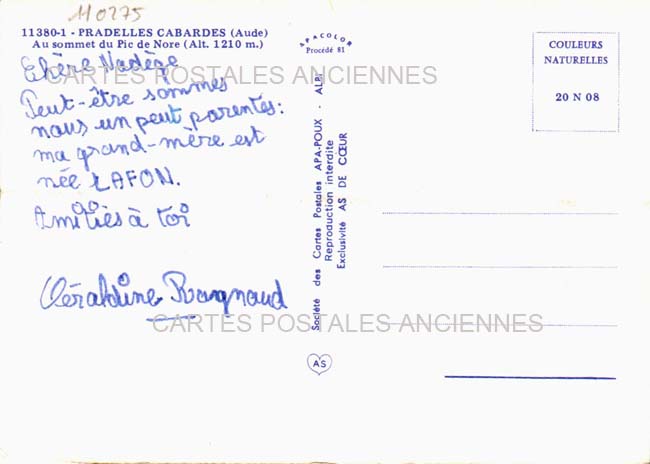 110275
11380-1 - PRADELLES CABARDES (Aude)
Au sommet du Pic de Nore (Alt. 1210 m.)
Chère Nadège
Peut-être sommes
nous un peut parentes:
ma grand-mère est
née LAFON.
Amitiès à toi
Géraldine Ragnaud
CARTES POSTALES ANCIENNES
CARTES POSTALES ANCIENNES
APACOLOR
Procédé 81
Société des Cartes Postales APA-POUX - ALBI
Reproduction interdite
Exclusivité AS DE CŒUR
AS
COULEURS
NATURELLES
20 N 08